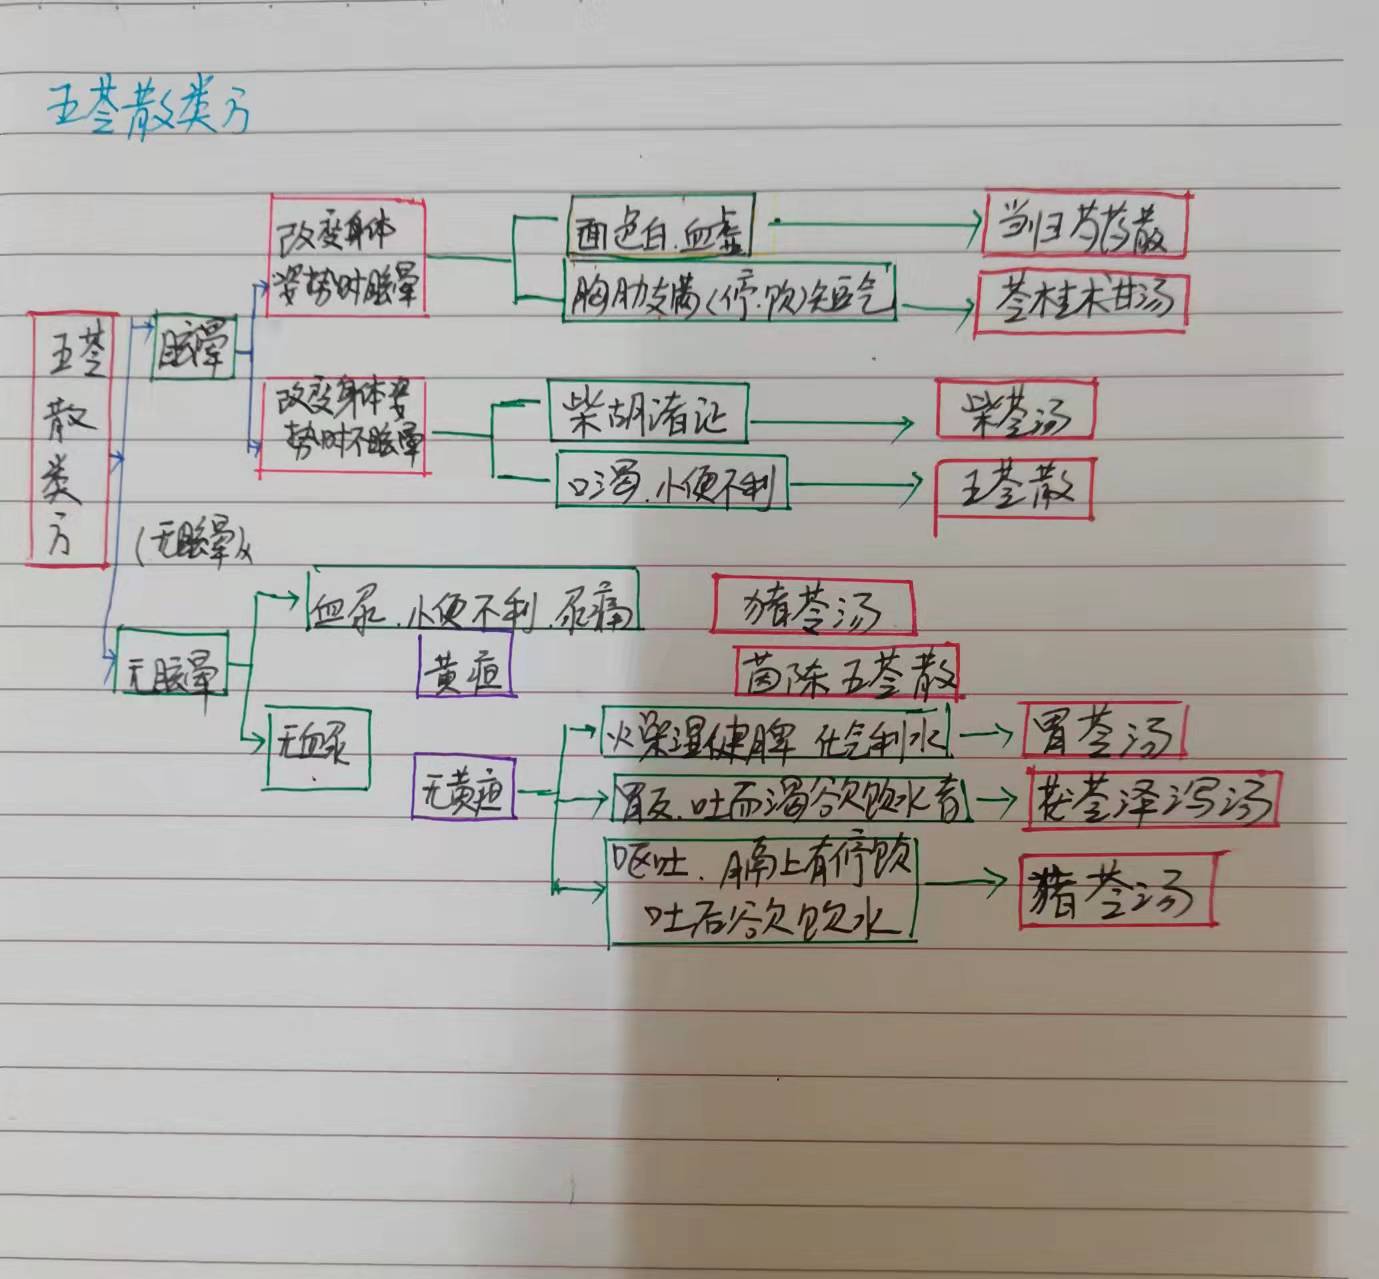 五苓散类方
改变身体
姿势时眩晕
面色白.血虚
当归芍药散
胸肋支满(停.饮)短气
苓桂术甘汤
五苓
散
类
方
眩晕
改变身体姿
势时不眩晕
柴胡诸证
柴苓汤
口渴.小便不利
五苓散
(无眩晕)
无眩晕
血尿.小便不利.尿痛
猪苓汤
黄疸
茵陈五苓散
无血尿
无黄疸
燥湿健脾 化气利水
胃苓汤
胃反.吐而渴欲饮水者
茯苓泽泻汤
呕吐.膈上有停饮
吐后欲饮水
猪苓汤